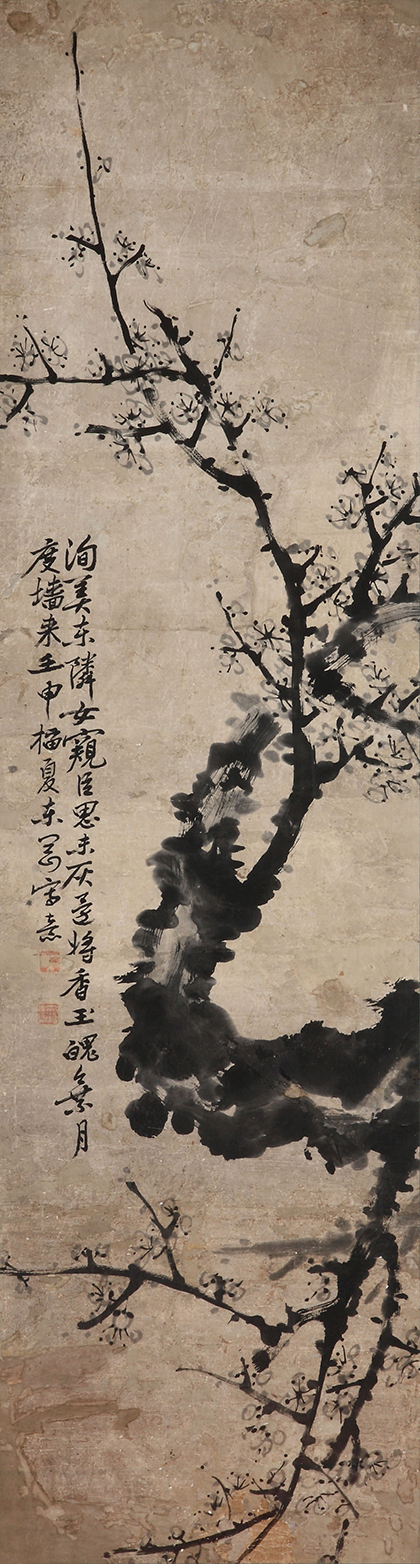 洵美东隣女窺臣思未灰還将香玉魄乘月
度墙来壬申橘夏东写意